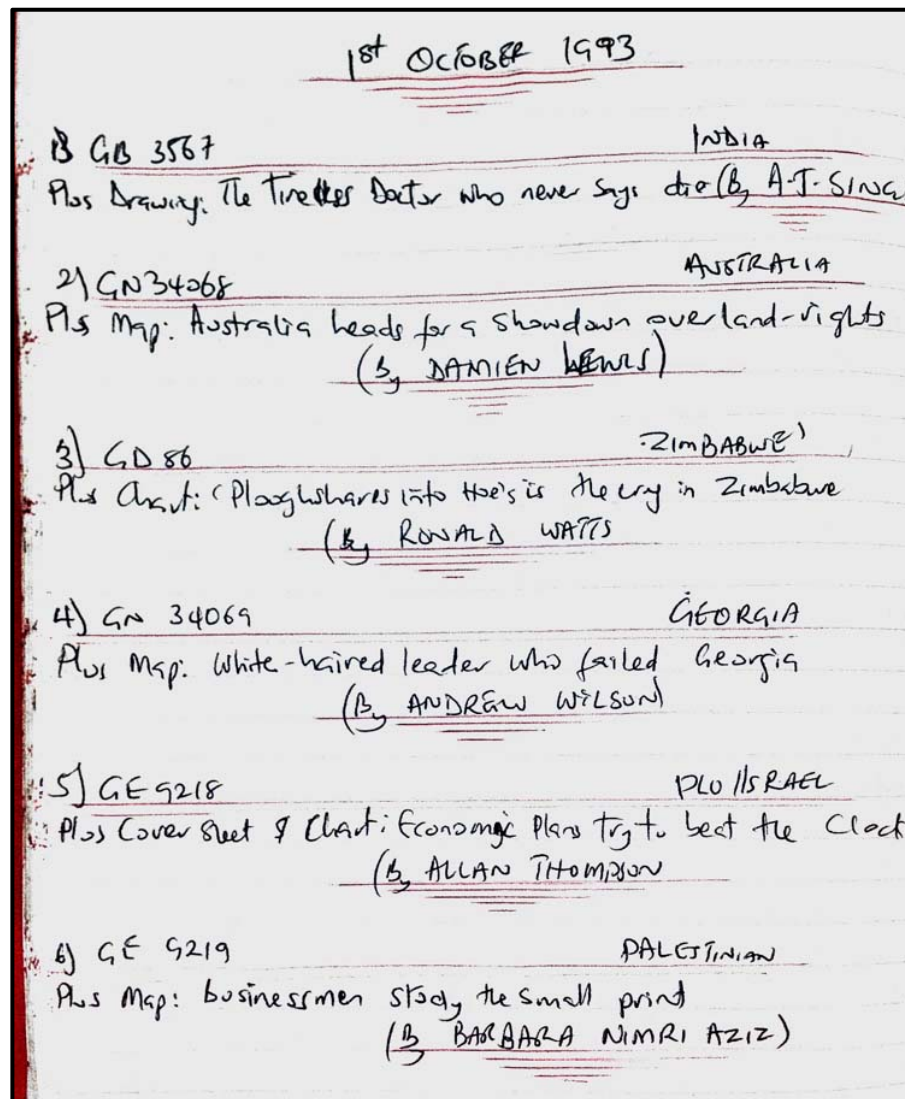 1st OCTOBER 1993
1) GB 3567 INDIA
Plus Drawing: The Tireless Doctor who never says die (By A.J. SINGH
2) GN34068 AUSTRALIA
Plus Map: Australia heads for a showdown over land-rights
(By DAMIEN LEWIS)
3) GD 86 ZIMBABWE
Plus Chart: 'Ploughshares into Hoe's is the cry in Zimbabwe
(By RONALD WATTS
4) GN 34069 GEORGIA
Plus Map: White-haired leader who failed Georgia
(By ANDREW WILSON)
5) GE 9218 PLO/ISRAEL
Plus Cover Sheet & Chart: Economic Plans Try to beat the Clock
(By ALLAN THOMPSON
6) GE 9219 PALESTINIAN
Plus Map: businessmen study the small print
(By BARBARA NIMRI AZIZ)